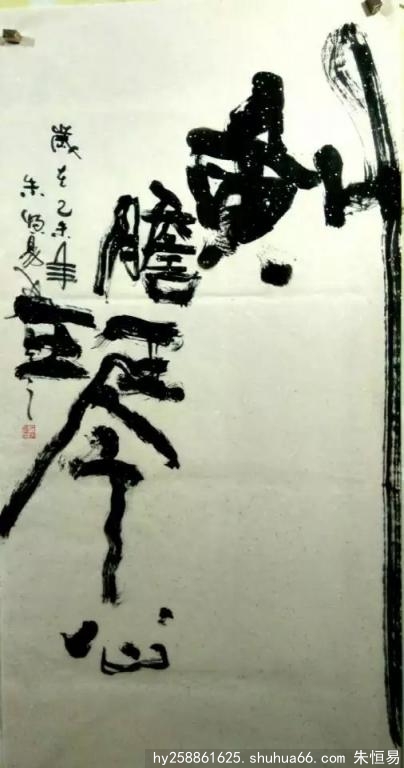 劍
膽
琴
心
歲在乙未年
朱恒易
hy258861625.shuhua66.com 朱恒易